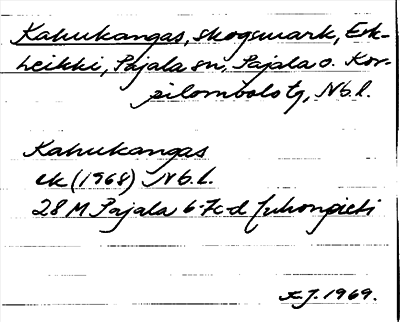 Kahukangas, skogsmark, Erk-
heikki, Pajala sn, Pajala o. Kor-
pilombolo tg, Nb.l.
Kahukangas
ek (1968) Nb.l.
28 M Pajala 6-7c-d Juhonpieti
1969.